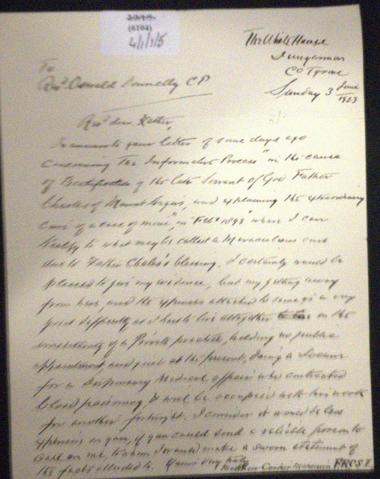 (6104)
4/1/1/5
The White House
Dungannon
Co Tyrone
Sunday 3 June
1923
To
Revd. Oswald Donnelly C.P
Revd. dear Father,
In answer to your letter of some days ago
concerning The "Informative Process" in the cause
of Beatification of the late Servant of God Father
Charles of Mount Argus, and explaining the extraordinary
cure of a case of mine, in Feby 1893 where I can
testify to what may be called a Miraculous cure
due to Father Charles's blessing. I certainly would be
pleased to give my evidence, but my getting away
from here and the expenses attached to same is a very
great difficulty as I have to live altogether on the
uncertainty of a Private practice, holding no public
appointment and just at the present, doing a Locum
for a Dispensary Medical officer who contracted
blood poisoning & will be occupied with his work
for another fortnight. I consider it would be less
expensive on you, if you could send a reliable person to
call on me, to whom I would make a sworn statement of
the facts alluded to. Yours very truly
FRCSI